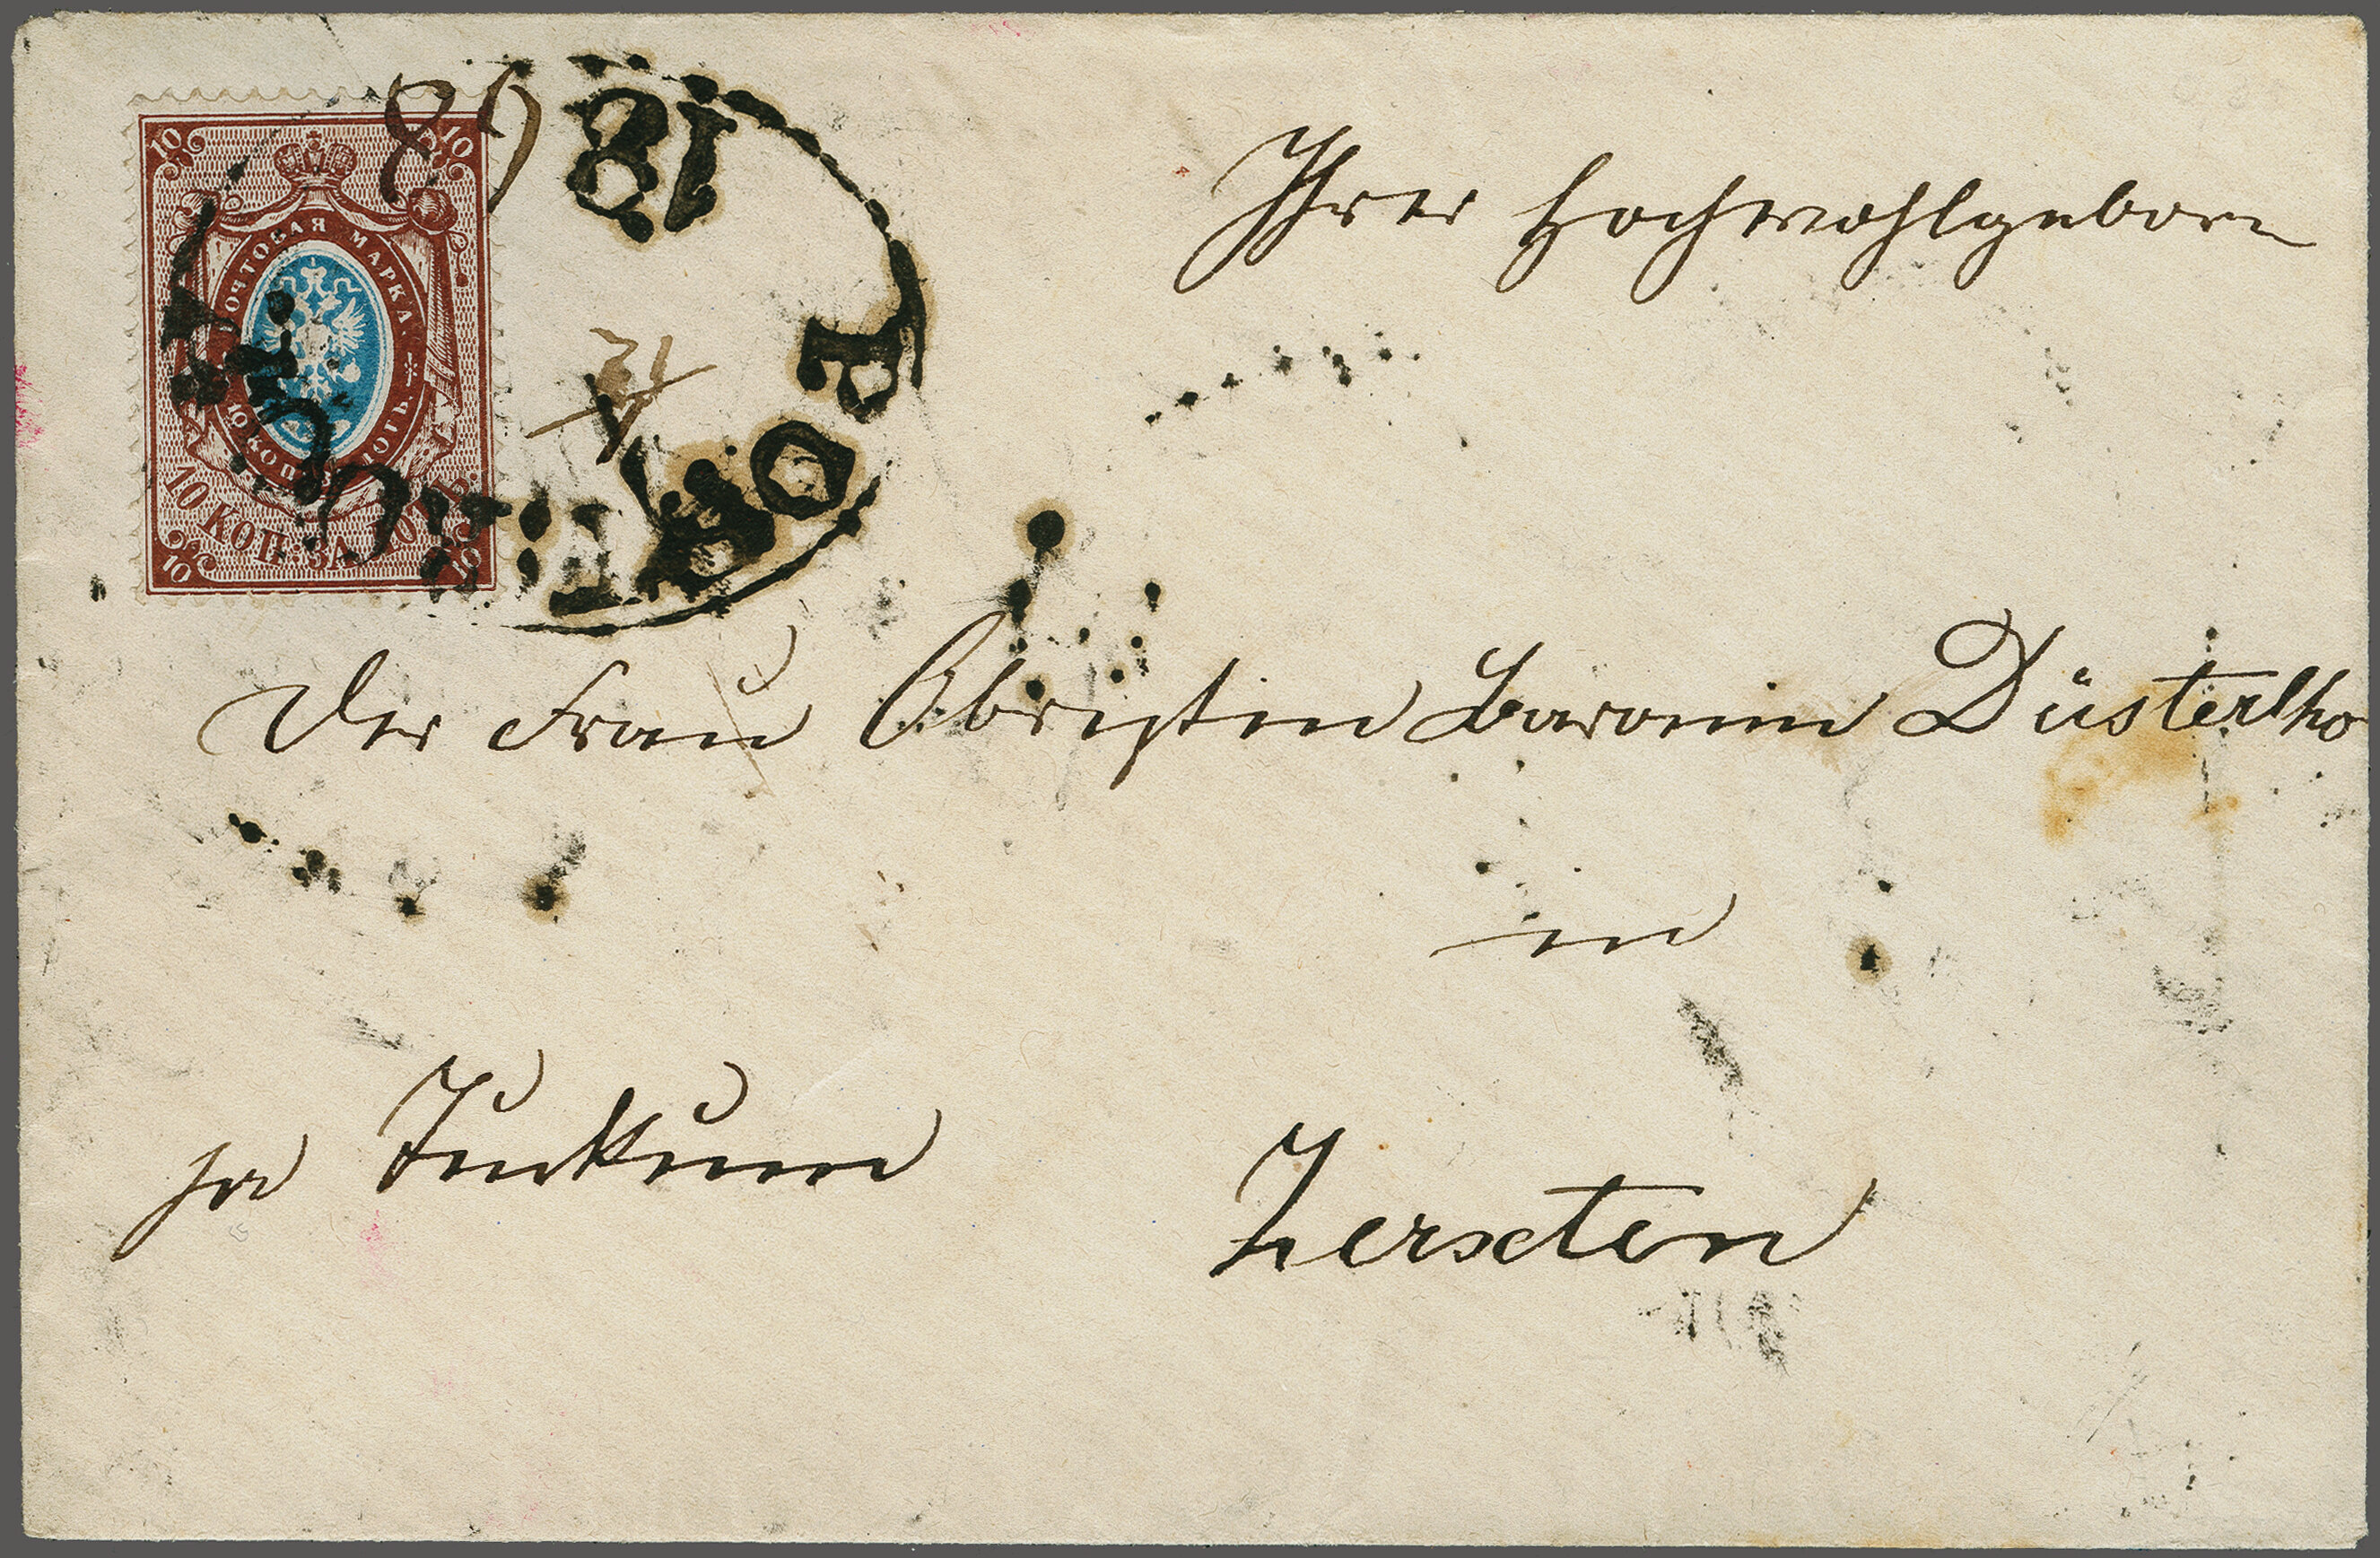 10 10
ПОЧТОВАЯ МАРКА.
10 КОП. ЗА ЛОТЪ.
10 КОП. ЗА ЛОТЪ.
10 10
1868
Ihrer Hochwohlgeborn
Der Frau Obristin Baronin Düsterlho
in
pr Tuckum
Zerxten